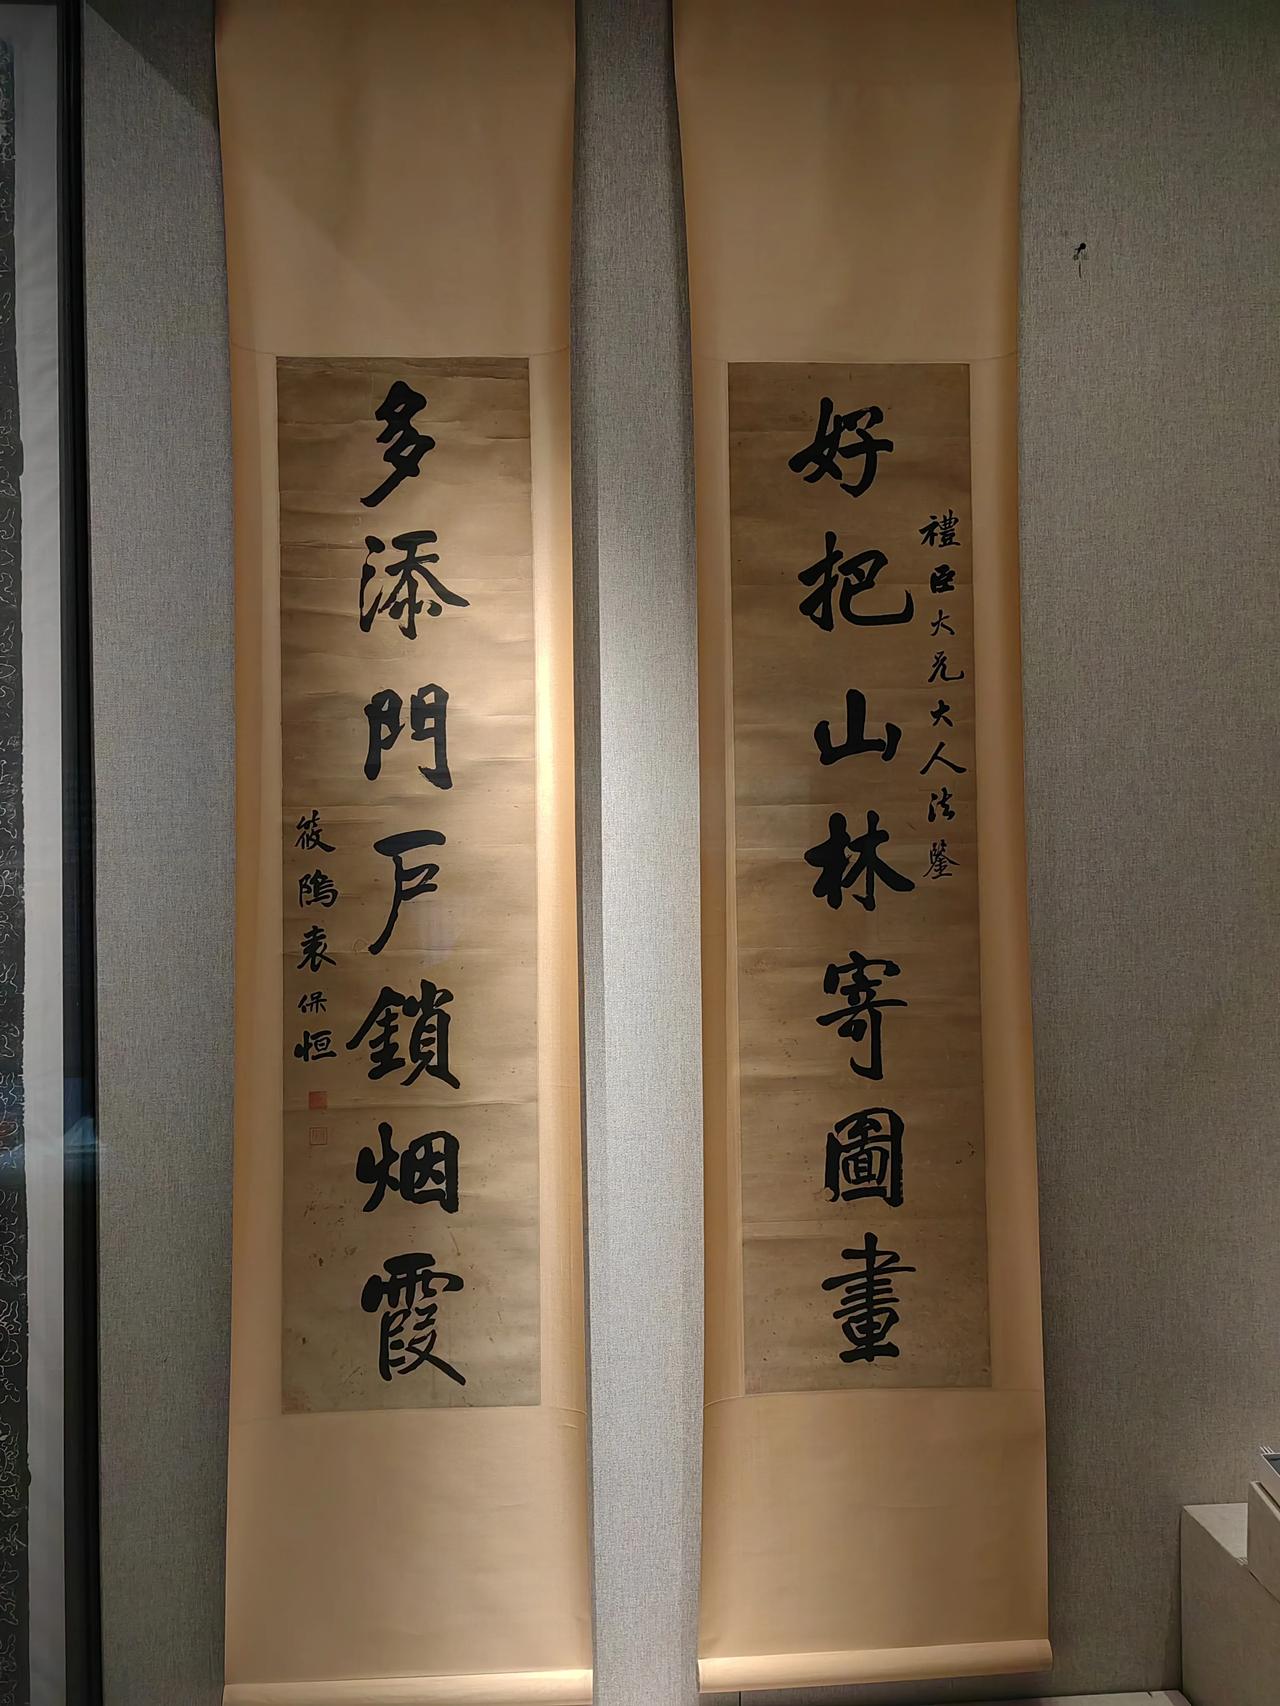 好把山林寄圖畫
禮臣大兄大人法鑒
多添門戶鎖烟霞
筱隖袁保恒